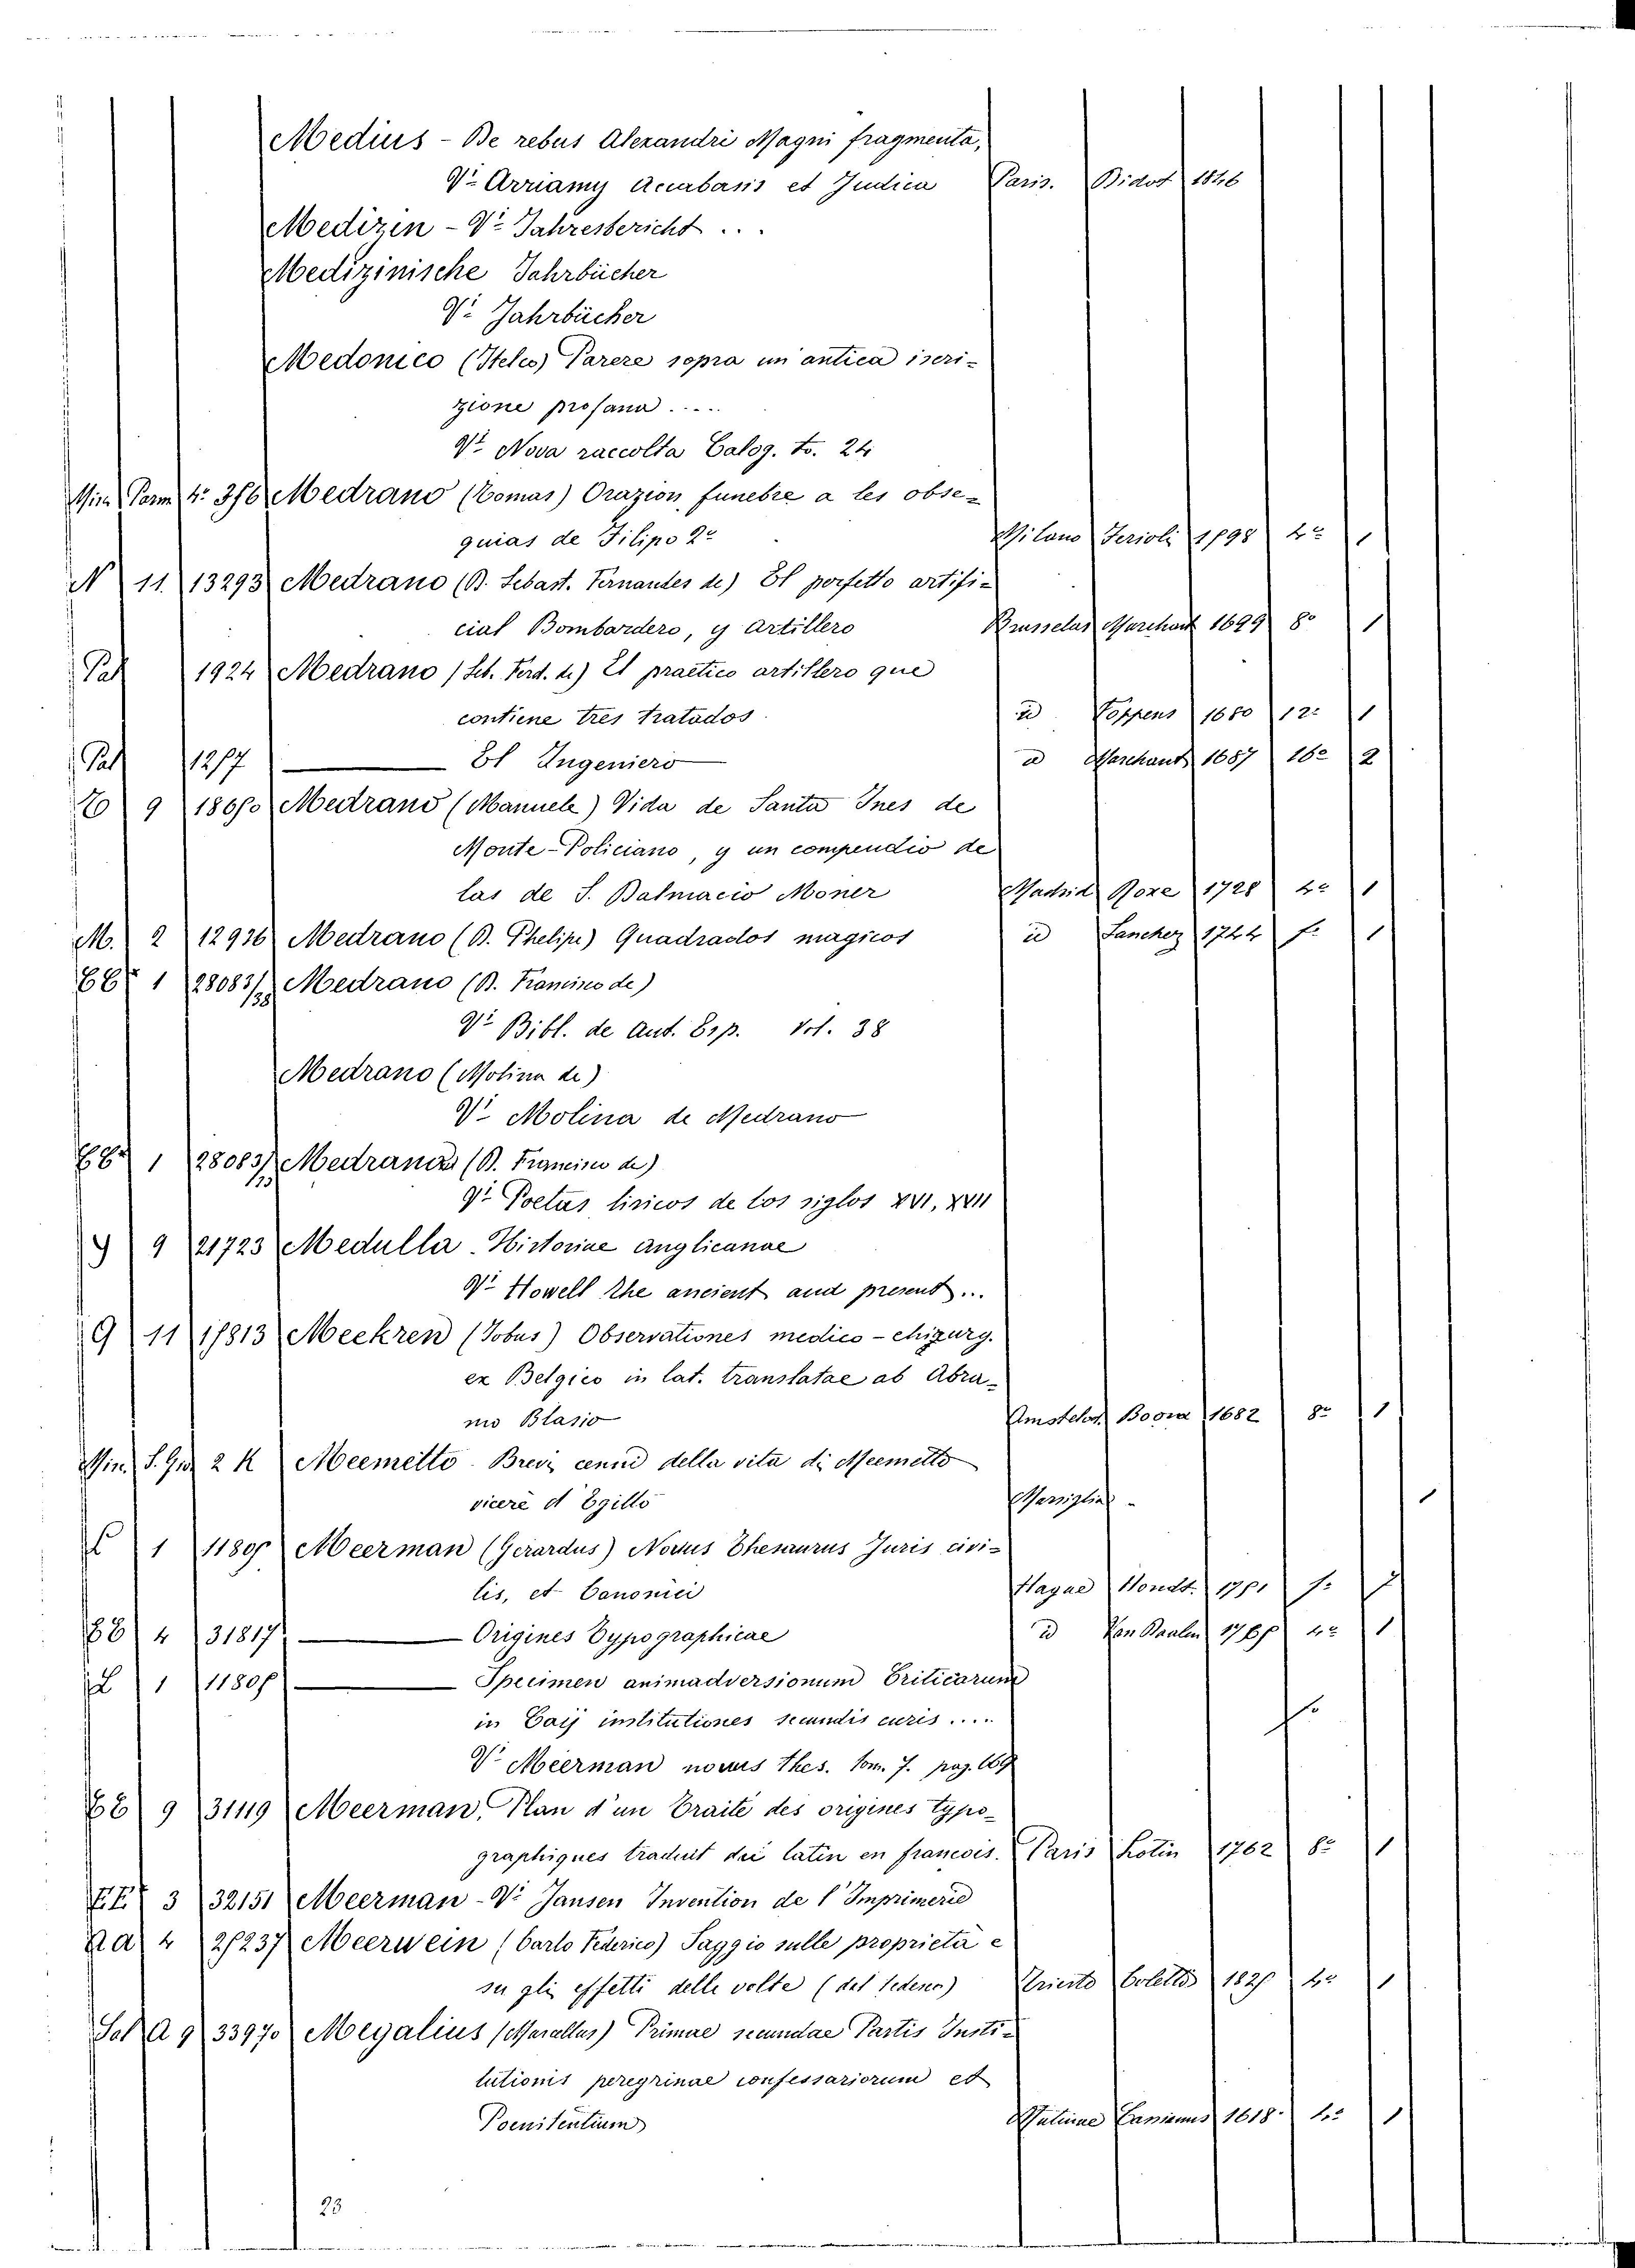 Medius - De rebus Alexandri Magni fragmenta,
Vi Arriany Anabasis et Indica Paris. Didot 1846
Medizin - Vi Jahresbericht ...
Medizinische Jahrbücher
Vi Jahrbücher
Medonico (Stelio) Parere sopra un' antica iscri-
zione profana ....
Vi Nova raccolta Calog. to. 24
Min Parm 4. 376 Medrano (Tomas) Orazion funebre a les obse-
quias de Filipo 2o Milano Ferioli 1598 4o 1
N 11. 13293 Medrano (D. Sebast. Fernandes de) El perfetto artifi-
cial Bombardero, y Artillero Brusselas Marchant 1699 8o 1
Pal 1924 Medrano (Seb. Ferd. de) El practico artillero que
contiene tres tratados id Foppens 1680 12o 1
Pal 1257 El Ingeniero id Marchant 1687 16o 2
9 Medrano (Manuele) Vida de Santa Ines de
Monte-Policiano, y un compendio de
las de S. Dalmacio Moner Madrid Roxe 1728 4o 1
M. 2 12936 Medrano (D. Phelipe) Quadrados magicos id Sanchez 1744 f. 1
EE 1 28083/38 Medrano (D. Francisco de)
Vi Bibl. de Aut. Esp. Vol. 38
Medrano (Molina de)
Vi Molina de Medrano
EE 1 28083/ Medrano (D. Francisco de)
Vi Poetas liricos de los siglos XVI, XVII
Y 9 21723 Medulla Historiae Anglicanae
Vi Howell The ancient and present ...
G 11 17813 Meekren (Jobus) Observationes medico-chirurg.
ex Belgico in lat. translatae ab Abra-
mo Blasio Amstelod. Boom 1682 8o 1
Min. S. Gio 2 K Meemetto - Brevi cenni della vita di Meemetto
vicerè d'Egitto Marsiglia - 1
L 1 11805 Meerman (Gerardus) Novus Thesaurus Juris civi-
lis, et Canonici Hagae Hondt. 1751 f. 7
EE 4 31817 Origines Typographicae id Van Daalen 1765 4o 1
L 1 11805 Specimen animadversionum Criticarum
in Caij institutiones secundis curis .... fo
Vi Meerman novus thes. tom. 7. pag. 669
EE 9 31119 Meerman, Plan d'un Traité des origines typo-
graphiques traduit du latin en francois. Paris Lotin 1762 8o 1
E.E. 3 32151 Meerman - Vi Jansen Invention de l'Imprimerie
Aa 4 25237 Meerwein (Carlo Federico) Saggio sulle proprietà e
su gli effetti delle volte (dal tedesco) Trieste Coletti 1825 4o 1
Sal A 9 33970 Megalius (Marallus) Primae secundae Partis Insti-
tutionis peregrinae confessariorum et
Poenitentium Mutinae Cassianus 1618. 4o 1
23